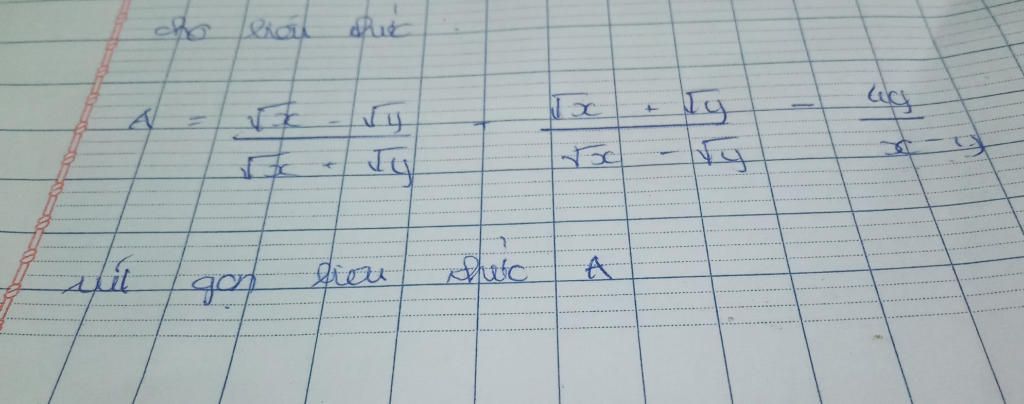 cho biểu thức
A = \frac{\sqrt{x} - \sqrt{y}}{\sqrt{x} + \sqrt{y}} - \frac{\sqrt{x} + \sqrt{y}}{\sqrt{x} - \sqrt{y}} - \frac{4y}{x - y}
rút gọn biểu thức A